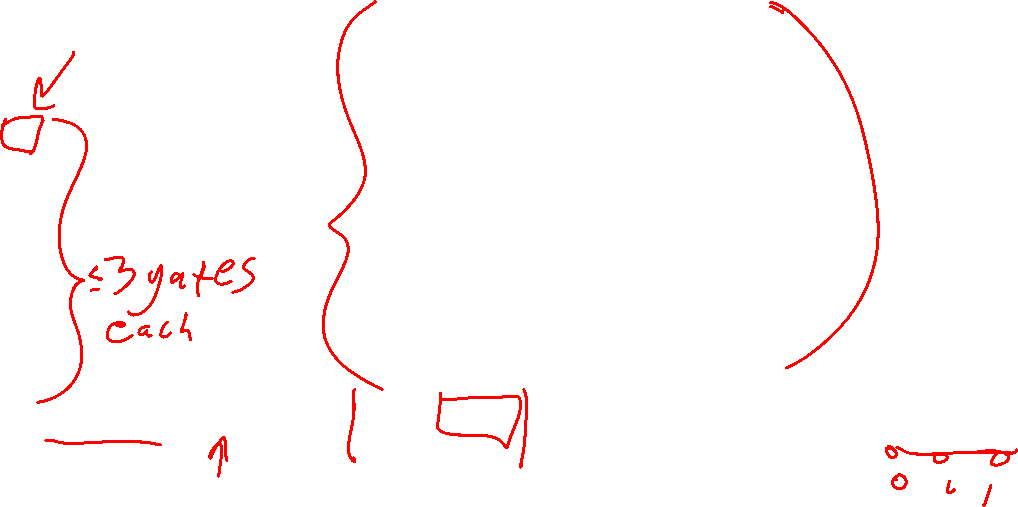 ≤3 gates
each
0 i 1